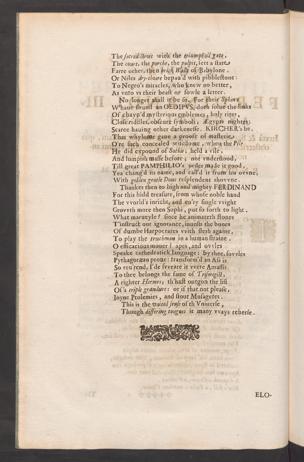 The sacred Brute with the triumphall gate,
The court, the porche, the pulpit, lett a state
Farre other, then brick Walls of Babylone.
Or Niles dry-choare bepau'd with pibblestone.
To Negro's miracles, who knew no better,
As vnto it their beast or fowle a letter.
No longer shall it be so. For their Sphinx
Whose found an OEDIPUS, doth solue the links
Of chayn'd mysterious emblemes, holy rites,
Close riddles, obscure symbols, Ægypts nights;
Scarce hauing other darkenesse. KIRCHER's he,
That whylome gaue a proofe of masterie,
O're such concealed
He did expound of Sotha, held a vile,
And lumpish masse before; one vnderstood,
Till great PAMPHILIO's vrdge made it good,
Yea chang'd its name, and call'd it from his owne,
With Doue resplendent thorowne.
Thankes then to high and mighty FERDINAND
For this hidd treasure, from whose noble hand
The vvorld's inricht, and eu'ry single vvight
Grovven more then Sophi, put so forth to light.
What maruayle? since he animateth stones
T'instruct our ignorance, insouls the bones
Of dumbe Harpocrates vvith flesh againe,
To play the in a human straine.
O efficacious mouer! apes, and ovvles
Speake cathedratick language: by thee, fovvles
Pythagorean proue: transform'd an Ass is
So reu'rend, I'de sweare it were Amasis
To thee belongs the fame of Trismegist,
A righter Hermes; th'hast outgon the list
Of's triple grandure: or if that not please,
Joyne Ptolemies, and stout Musagetes.
This is the vniuersal sense of th'Vniuerse,
Though differing tongues it many wayes reherse.
ELO-